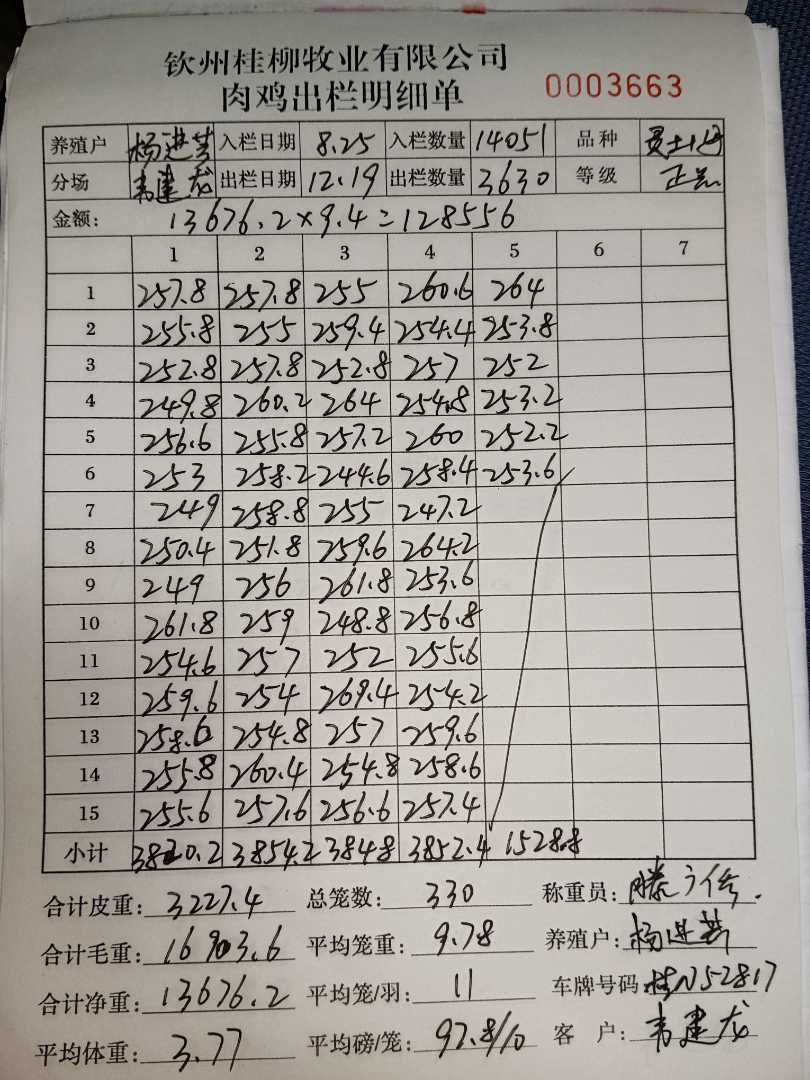 钦州桂柳牧业有限公司
肉鸡出栏明细单 0003663
养殖户 杨进芳 入栏日期 8.25 入栏数量 14051 品种
分场 韦建龙 出栏日期 12.19 出栏数量 3630 等级
金额: 13676.2×9.4=128556
1 2 3 4 5 6 7
1 257.8 257.8 255 260.6 264
2 255.8 255 259.4 254.4 253.8
3 252.8 257.8 252.8 257 252
4 249.8 260.2 264 254.8 253.2
5 256.6 255.8 257.2 260 252.2
6 253 258.2 244.6 258.4 253.6
7 249 258.8 255 247.2
8 250.4 251.8 259.6 264.2
9 249 256 261.8 253.6
10 261.8 259 248.8 256.8
11 254.6 257 252 255.6
12 259.6 254 269.4 254.2
13 258.6 254.8 257 259.6
14 255.8 260.4 254.8 258.6
15 255.6 257.6 256.6 257.4
小计 3820.2 3854.2 3848 3852.4 1528.8
合计皮重: 3227.4 总笼数: 330 称重员: 滕
合计毛重: 16903.6 平均笼重: 9.78 养殖户: 杨进芳
合计净重: 13676.2 平均笼/羽: 11 车牌号码: 桂N52817
平均体重: 3.77 平均磅/笼: 97.8/10 客户: 韦建龙